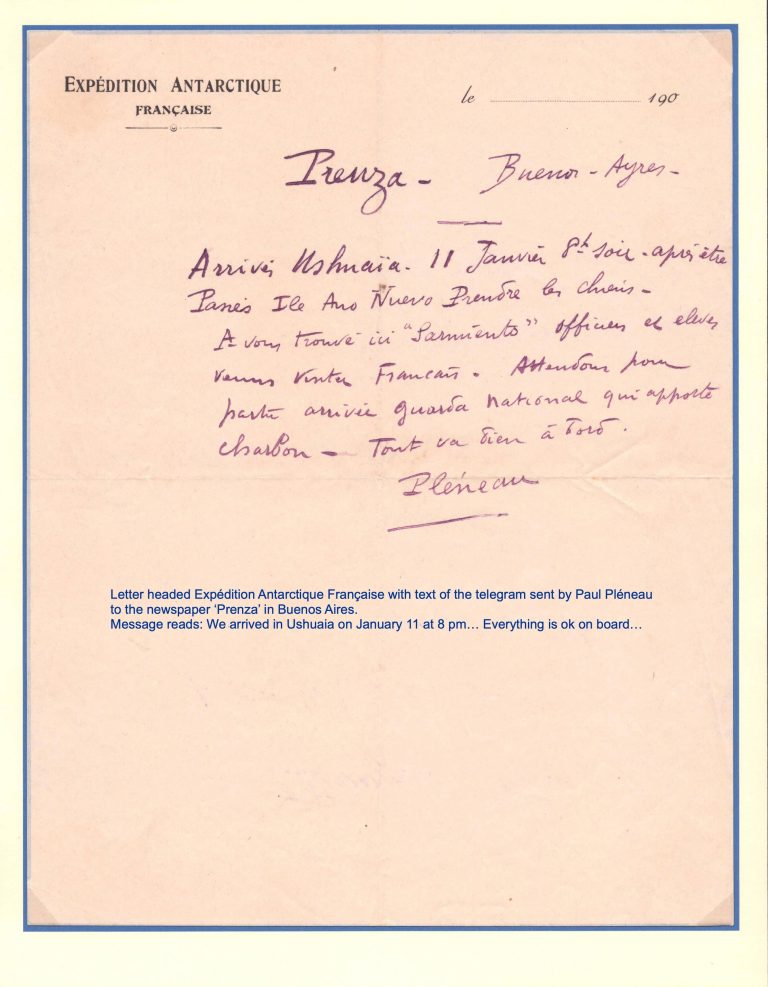 EXPÉDITION ANTARCTIQUE
FRANÇAISE
le 190
Prenza - Buenos - Ayres -
Arrivés Ushuaïa. 11 Janvier 8h soir - après être
Passés Ile Ano Nuevo Prendre les chiens -
Avons trouvé ici "Sarmiento" officiers et eleves
venus visiter Francais. Attendons pour
partir arrivée guarda National qui apporte
charbon - Tout va bien à bord.
Pléneau
Letter headed Expédition Antarctique Française with text of the telegram sent by Paul Pléneau
to the newspaper ‘Prenza’ in Buenos Aires.
Message reads: We arrived in Ushuaia on January 11 at 8 pm… Everything is ok on board…